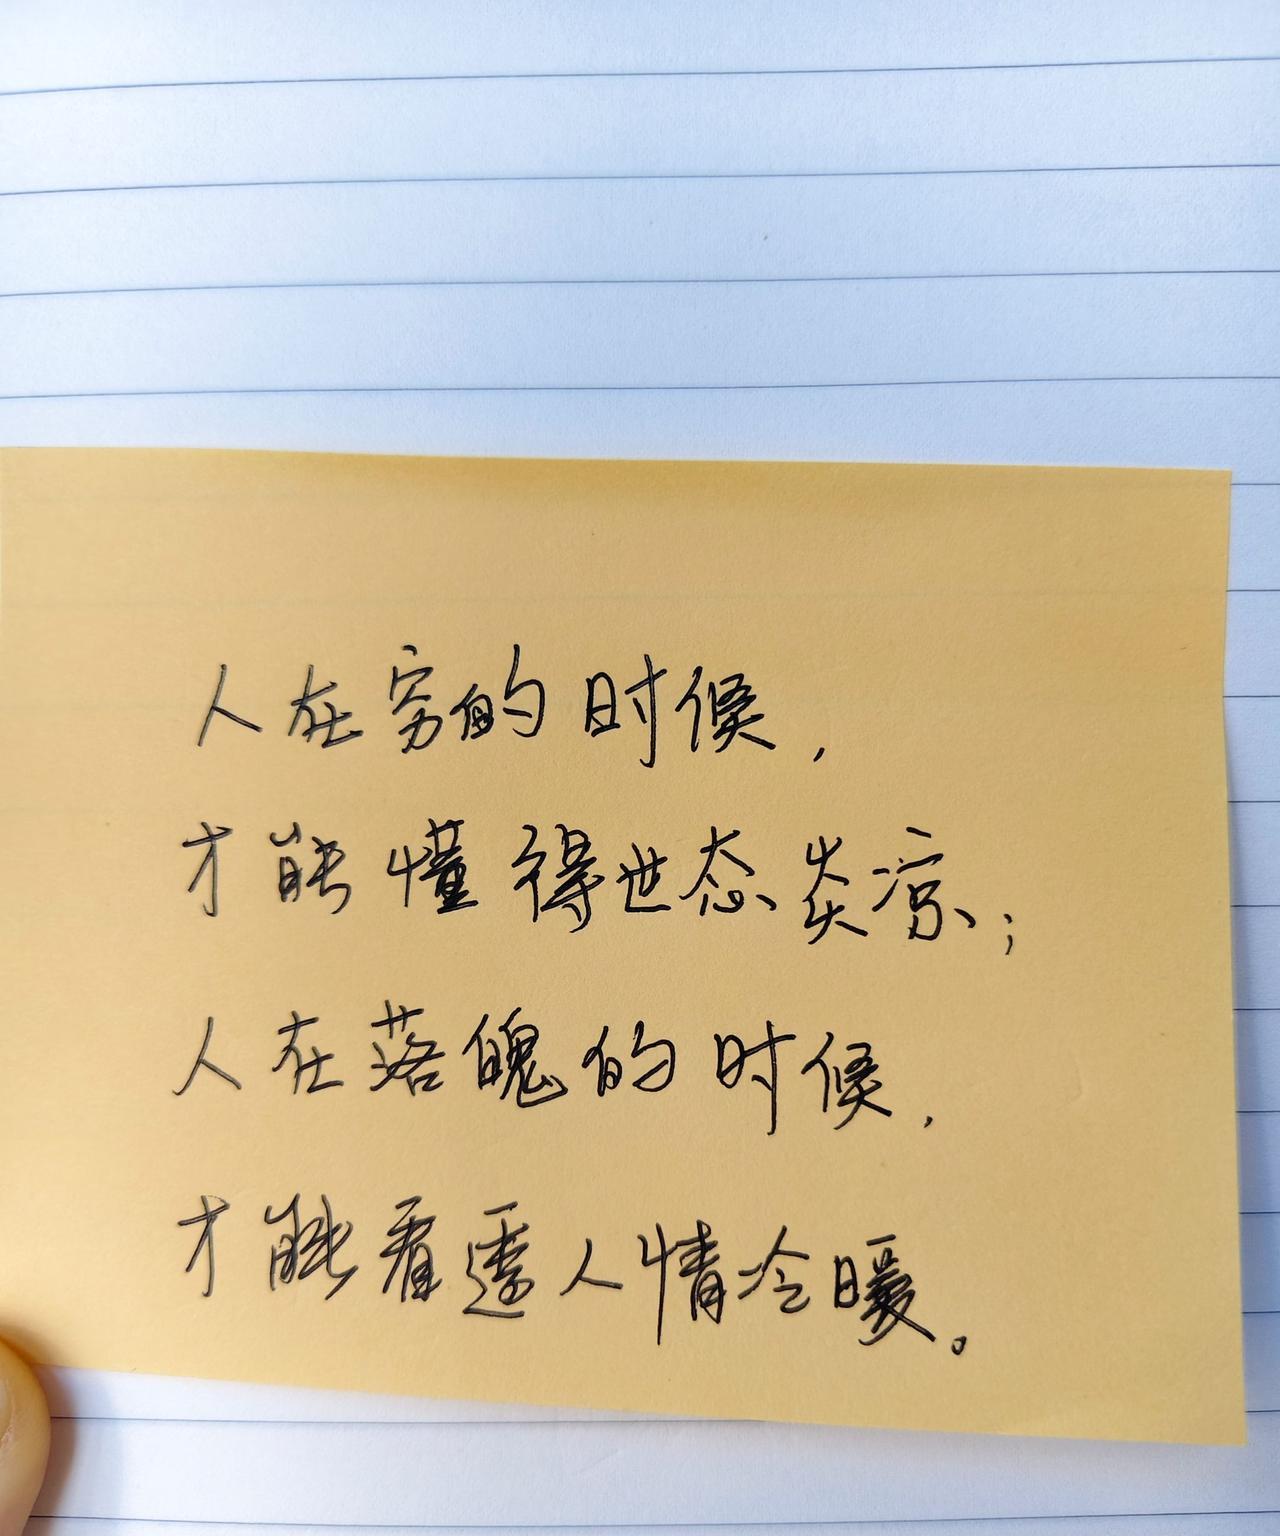 人在穷的时候,
才能懂得世态炎凉;
人在落魄的时候,
才能看透人情冷暖。